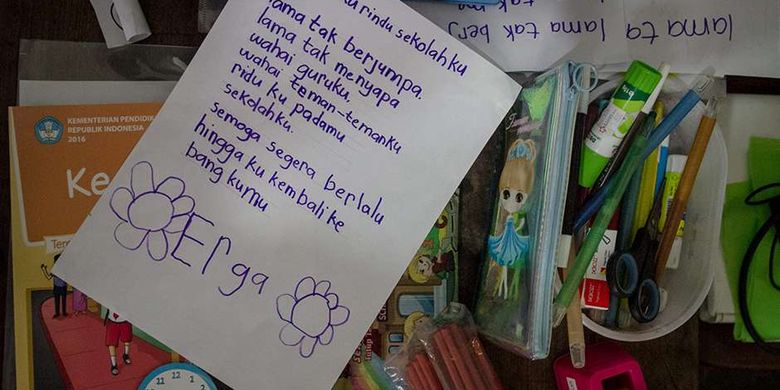 ku rindu sekolahku
lama tak berjumpa.
lama tak menyapa
wahai guruku,
wahai teman-temanku
ridu ku padamu
sekolahku.
semoga segera berlalu
hingga ku kembali ke
bang kumu
Erga
KEMENTERIAN PENDIDIK
REPUBLIK INDONESIA
2016
Ke
lama ta lama tak berj